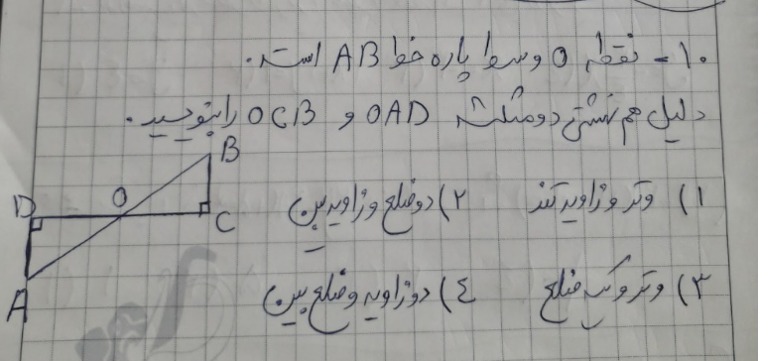 ۱۰- نقطه O وسط پاره خط AB است.
دلیل هم نهشتی دو مثلث OAD و OCB را بنویسید.
۱) وتر و زاویه تند ۲) دو ضلع و زاویه بین
۳) وتر و یک ضلع ٤) دو زاویه و ضلع بین
B
D O
C
A